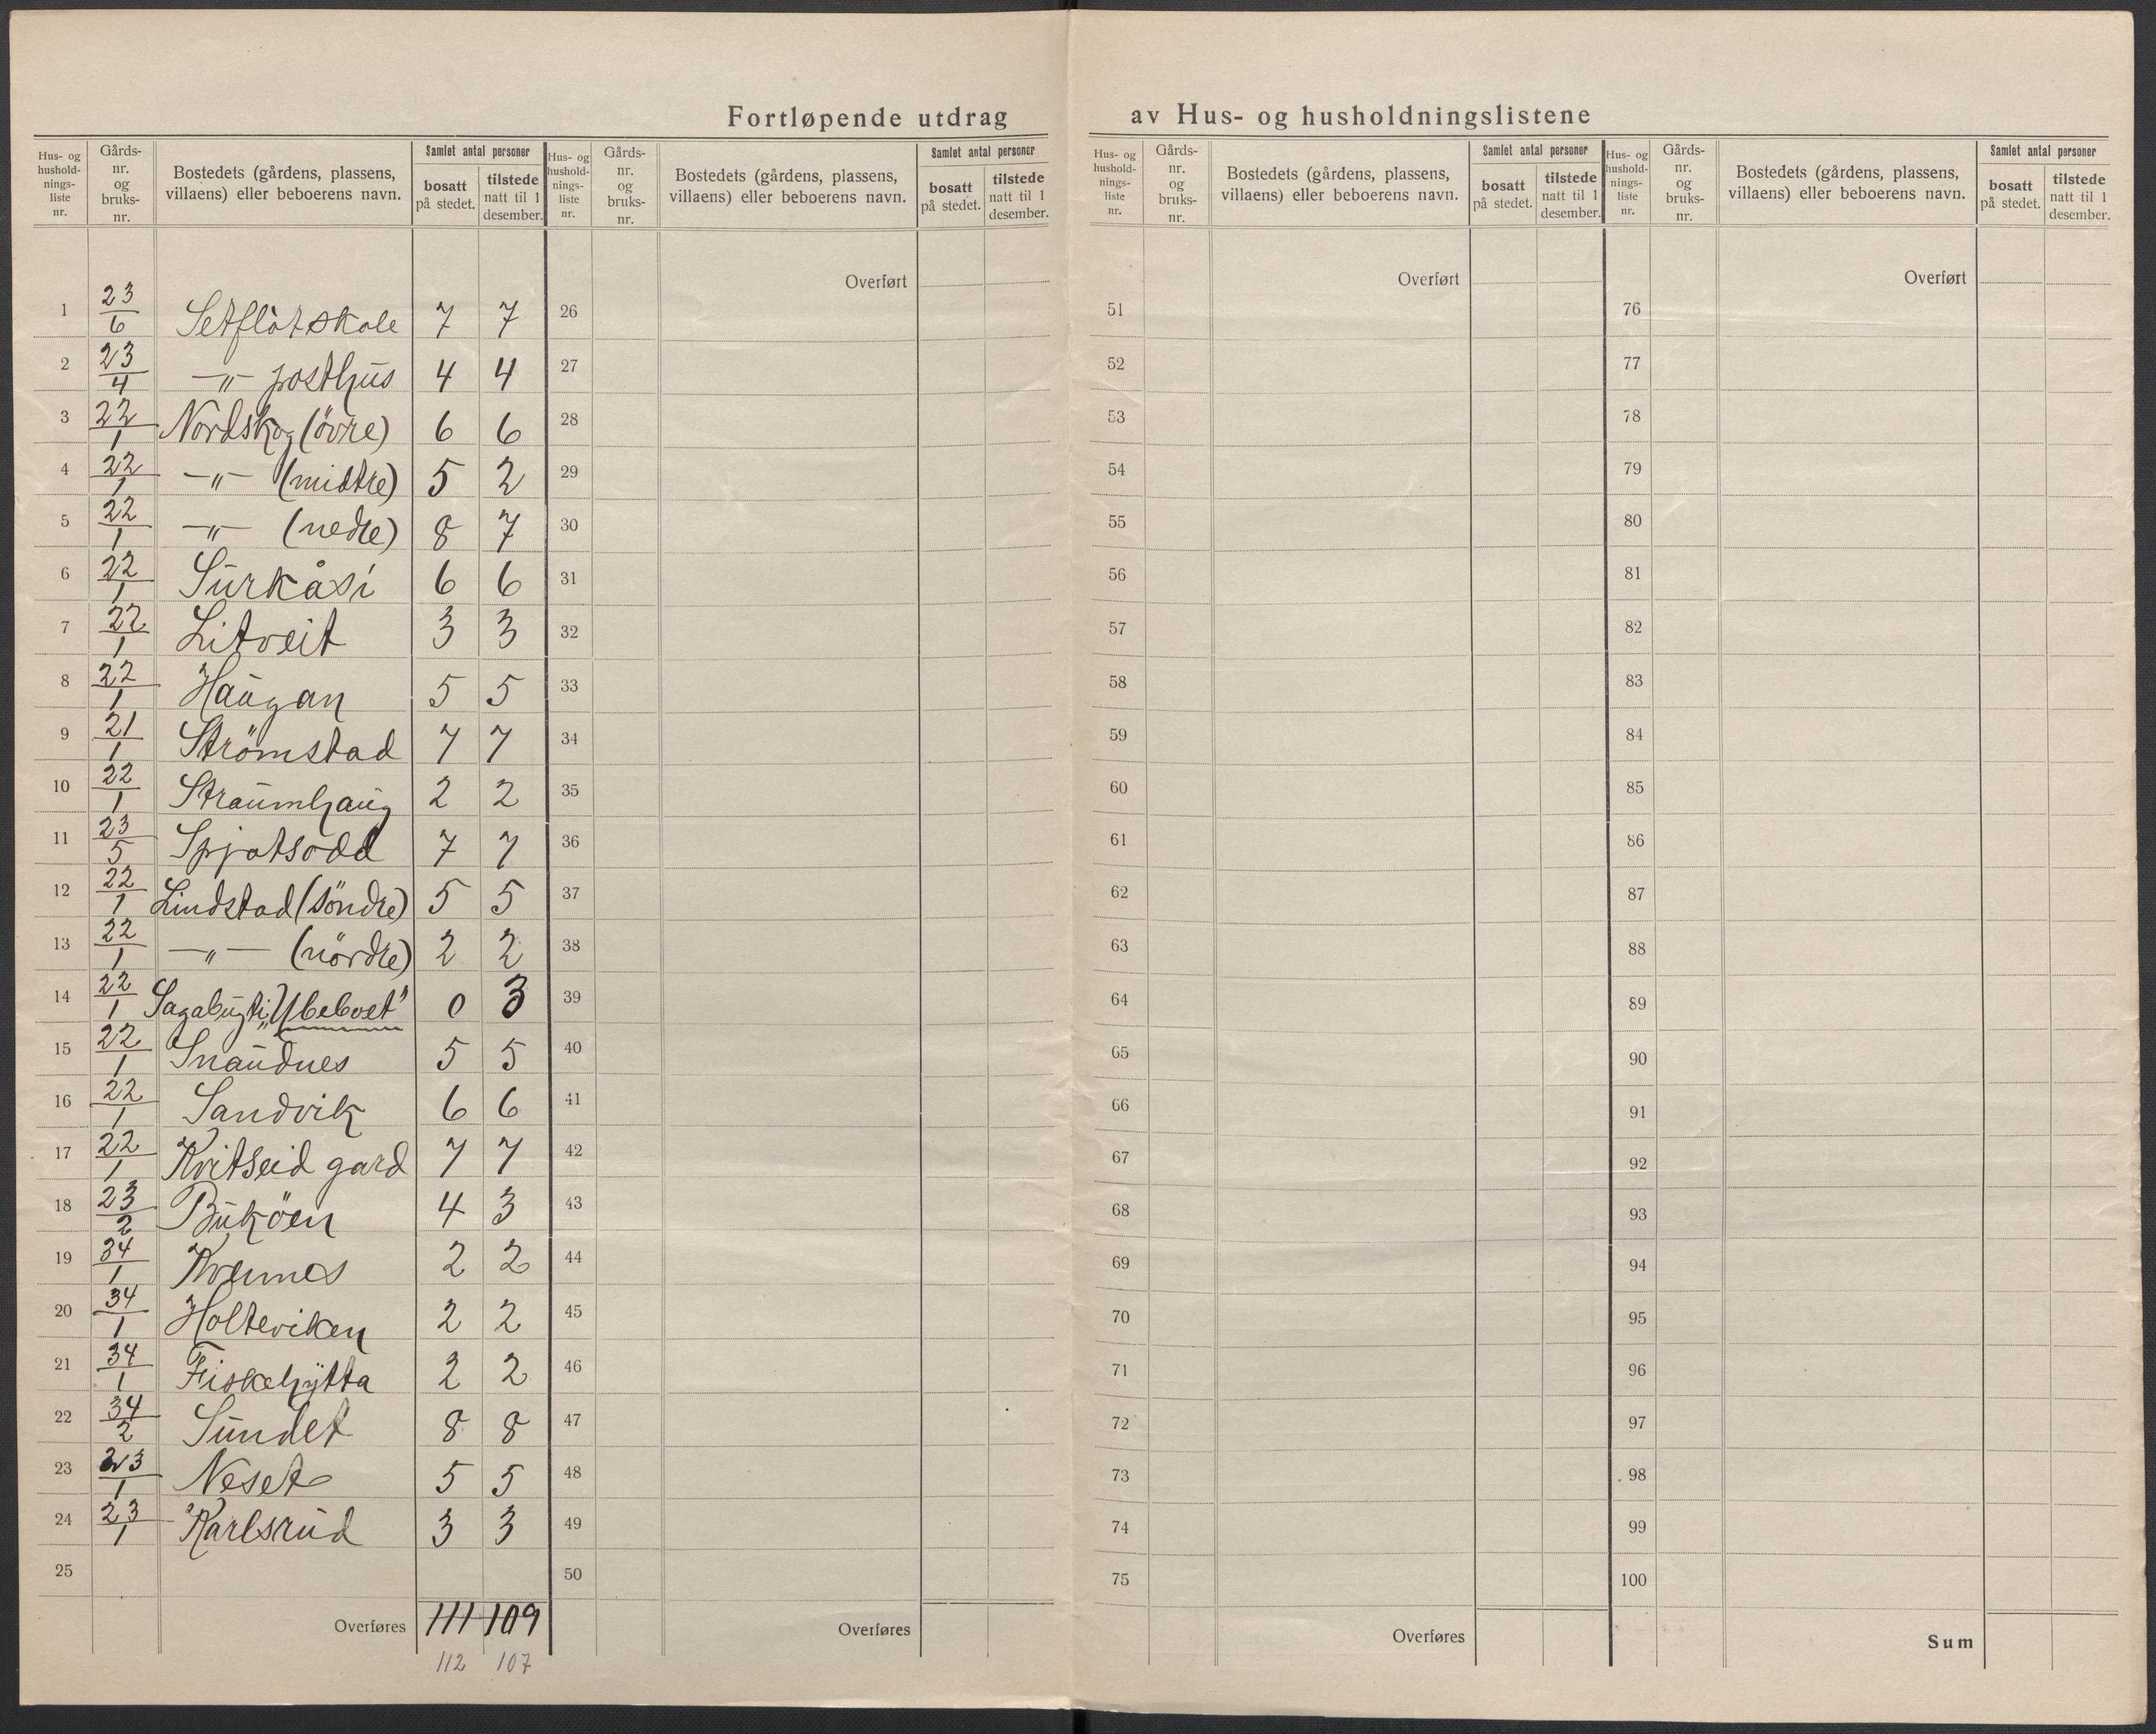 Fortløpende utdrag av Hus- og husholdningslistene
Hus- og hushold-nings-liste nr. | Gårds-nr. og bruks-nr. | Bostedets (gårdens, plassens, villaens) eller beboerens navn. | Samlet antal personer | bosatt på stedet. | tilstede natt til 1 desember.
1 23/6 Setflotskole 7 7
2 23/4 —"— posthus 4 4
3 22/1 Nordskog (övre) 6 6
4 22/1 —"— (midtre) 5 2
5 22/1 —"— (nedre) 8 7
6 22/1 Surkåsi 6 6
7 22/1 Litveit 3 3
8 22/1 Haugan 5 5
9 21/1 Strömstad 7 7
10 22/1 Straumhaug 2 2
11 23/5 Spjotsodd 7 7
12 22/1 Lindstad (söndre) 5 5
13 22/1 —"— (nördre) 2 2
14 22/1 Sagabugti „Ubeboet" 0 3
15 22/1 Snaudnes 5 5
16 22/1 Sandvik 6 6
17 22/1 Kvitseid gard 7 7
18 23/2 Buköen 4 3
19 34/1 Kvennes 2 2
20 34/1 Holteviken 2 2
21 34/1 Fiskehytta 2 2
22 34/2 Sundet 8 8
23 23/1 Neset 5 5
24 23/1 Karlsrud 3 3
25
Overføres 111 109
112 107
Hus- og hushold-nings-liste nr. | Gårds-nr. og bruks-nr. | Bostedets (gårdens, plassens, villaens) eller beboerens navn. | Samlet antal personer | bosatt på stedet. | tilstede natt til 1 desember.
Overført
26
27
28
29
30
31
32
33
34
35
36
37
38
39
40
41
42
43
44
45
46
47
48
49
50
Overføres
Hus- og hushold-nings-liste nr. | Gårds-nr. og bruks-nr. | Bostedets (gårdens, plassens, villaens) eller beboerens navn. | Samlet antal personer | bosatt på stedet. | tilstede natt til 1 desember.
Overført
51
52
53
54
55
56
57
58
59
60
61
62
63
64
65
66
67
68
69
70
71
72
73
74
75
Overføres
Hus- og hushold-nings-liste nr. | Gårds-nr. og bruks-nr. | Bostedets (gårdens, plassens, villaens) eller beboerens navn. | Samlet antal personer | bosatt på stedet. | tilstede natt til 1 desember.
Overført
76
77
78
79
80
81
82
83
84
85
86
87
88
89
90
91
92
93
94
95
96
97
98
99
100
Sum